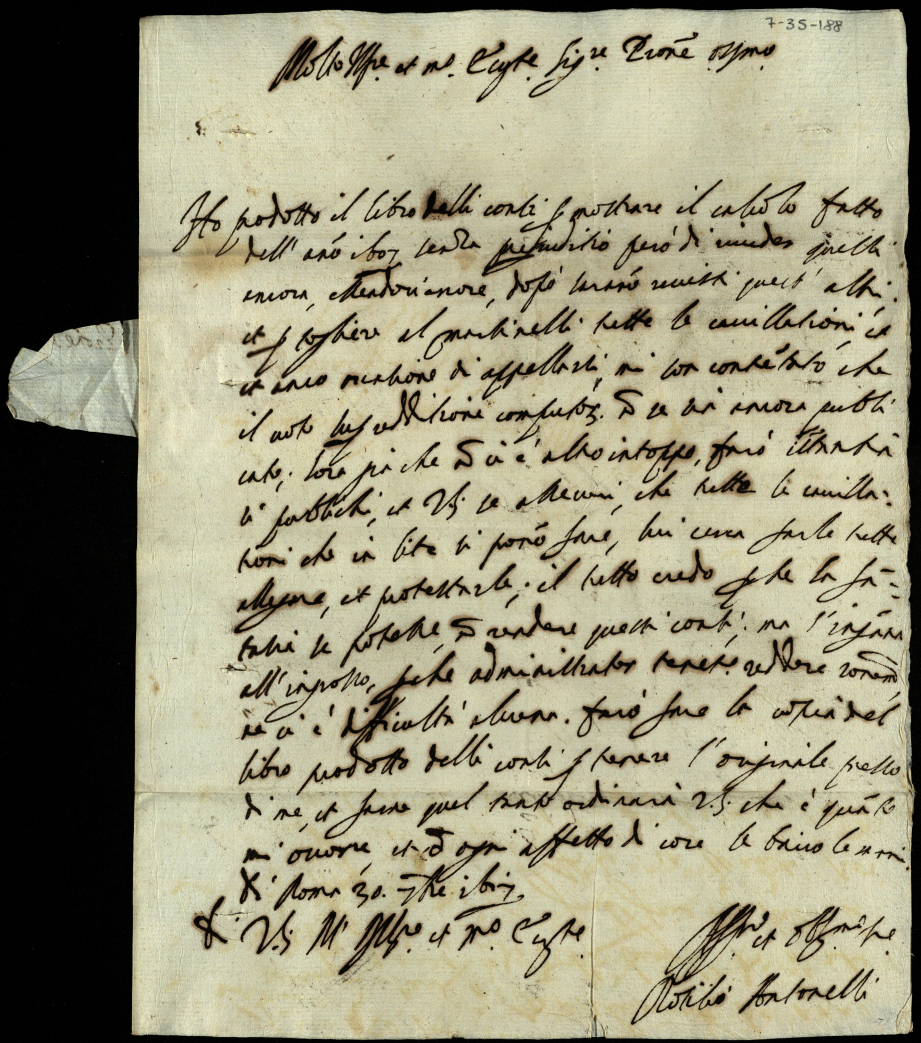 7-35-188
Molto Ill.re et m.o Ecc.te Sig.re Prone oss.mo
Ho prodotto il libro delli conti p mostrare il calcolo fatto
dell' ano 1607 senza preiuditio però di quelli
ancora, dopò sarano revisti quest' altri.
et p togliere al Martinelli tutte le cavillationi, et
et anco occasione di appellarsi, mi son contetato che
il voto sup redditione computoz. no se sia ancora publi
cato, hora pia che no ci è altro intoppo, farò
si publichi, et V.S. se che tutte le cavilla=
tioni che in lite si pono fare, lui cerca farle tutte
et protestarle; il tutto credo p che la
se potesse, no rendere questi conti; ma l'ingana
all'ingrosso, p che administrator tenet.r reddere
ne ci è difficultà alcuna. farò fare la copia del
libro prodotto delli conti p tenere l'originale presso
di me, et farne quel tanto ordinarà V.S. che è quato
mi occorre, et co ogni affetto di core le bacio le mani.
Di Roma 30. 7bre 1617
Di V.S. M. Ill.re et m.o Ecc.te
Aff.mo et Obl.mo se.
Rotilio Antonelli